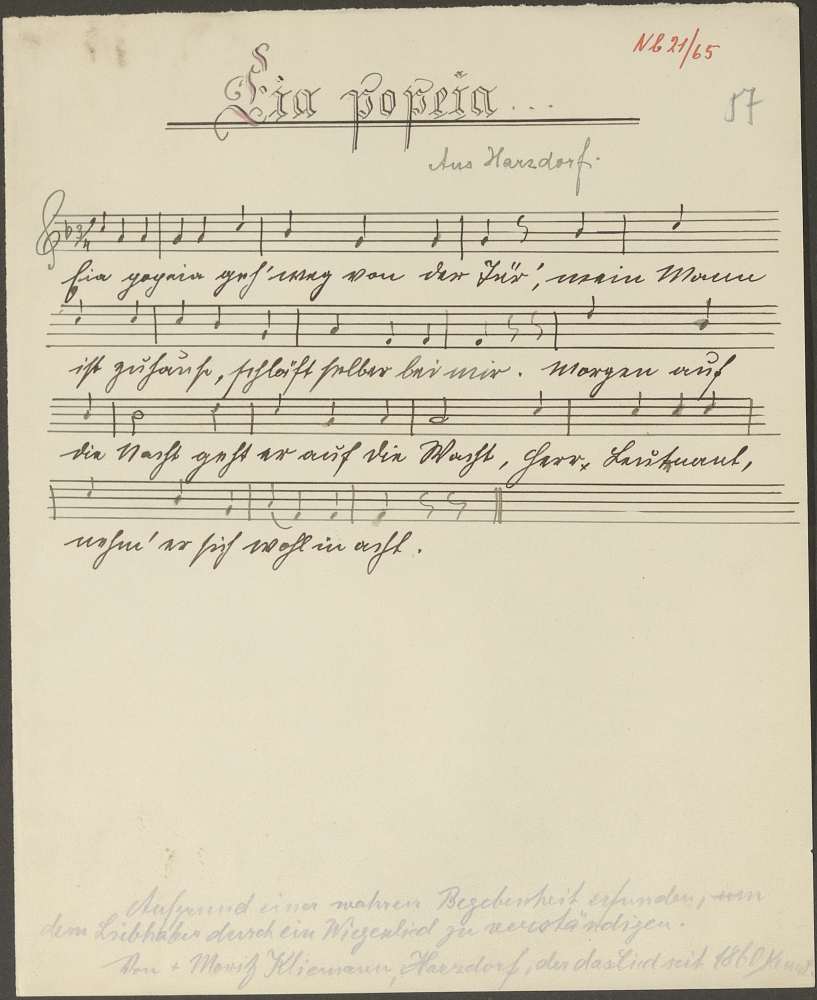 NB 21/65
Eia popeia...
57
Aus Harsdorf.
3/4
Eia popeia geh' weg von der Tür', mein Mann
ist zuhause, schläft selber bei mir. Morgen auf
die Nacht geht er auf die Wacht, Herr Leutnant,
nehm' er sich wohl in acht.
Aufgrund einer wahren Begebenheit erfunden, um
dem Liebhaber durch ein Wiegenlied zu verständigen.
Von + Moritz Kliemann, Harsdorf, der das Lied seit 1860